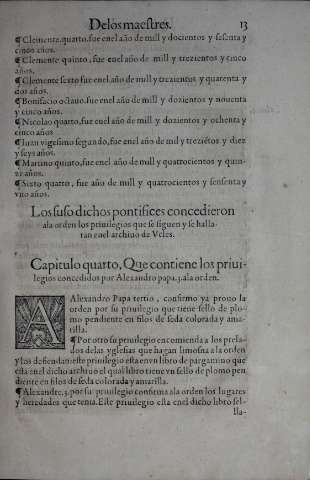 Delos maestres. 13
¶Clemente.quarto.fue enel año de mill y docientos y sesenta y
cinco años.
¶Clemente quinto, fue enel año de mill y trezientos y cinco
años.
¶Clemente sexto fue enel año de mill y trezientos y quarenta y
dos años.
¶Bonifacio octauo.fue enel año de mill y dozientos y nouenta
y cinco años.
¶Nicolao quarto,fue enel año de mill y dozientos y ochenta y
cinco años
¶Iuan vigesimo segundo,fue enel año de mil y treziētos y diez
y seys años.
¶Martino quinto,fue enel año de mill y quatrocientos y quin-
ze años.
¶Sixto quarto, fue año de mill y quatrocientos y sensenta y
vno años.
Los suso dichos pontifices concedieron
ala orden los priuilegios que se siguen y se halla-
ran enel archiuo de Vcles.
Capitulo quarto, Que contiene los priui-
legios concedidos por Alexandro papa.3.ala orden.
Alexandro Papa tertio, confirmo ya prouo la
orden por su priuilegio que tiene sello de plo-
mo pendiente en filos de seda colorada y ama-
rilla.
¶Por otro su priuilegio encomienda a los prela-
dos delas yglesias que hagan limosna ala orden
y los defiendan:este priuilegio esta en vn libro de pargamino que
esta enel dicho archiuo el qual libro tiene vn sello de plomo pen
diente en filos de seda colorada y amarilla.
¶Alexandre.3.por su priuilegio confirma ala orden los lugares
y heredades que tenia.Este priuilegio esta enel dicho libro sel-
lla-